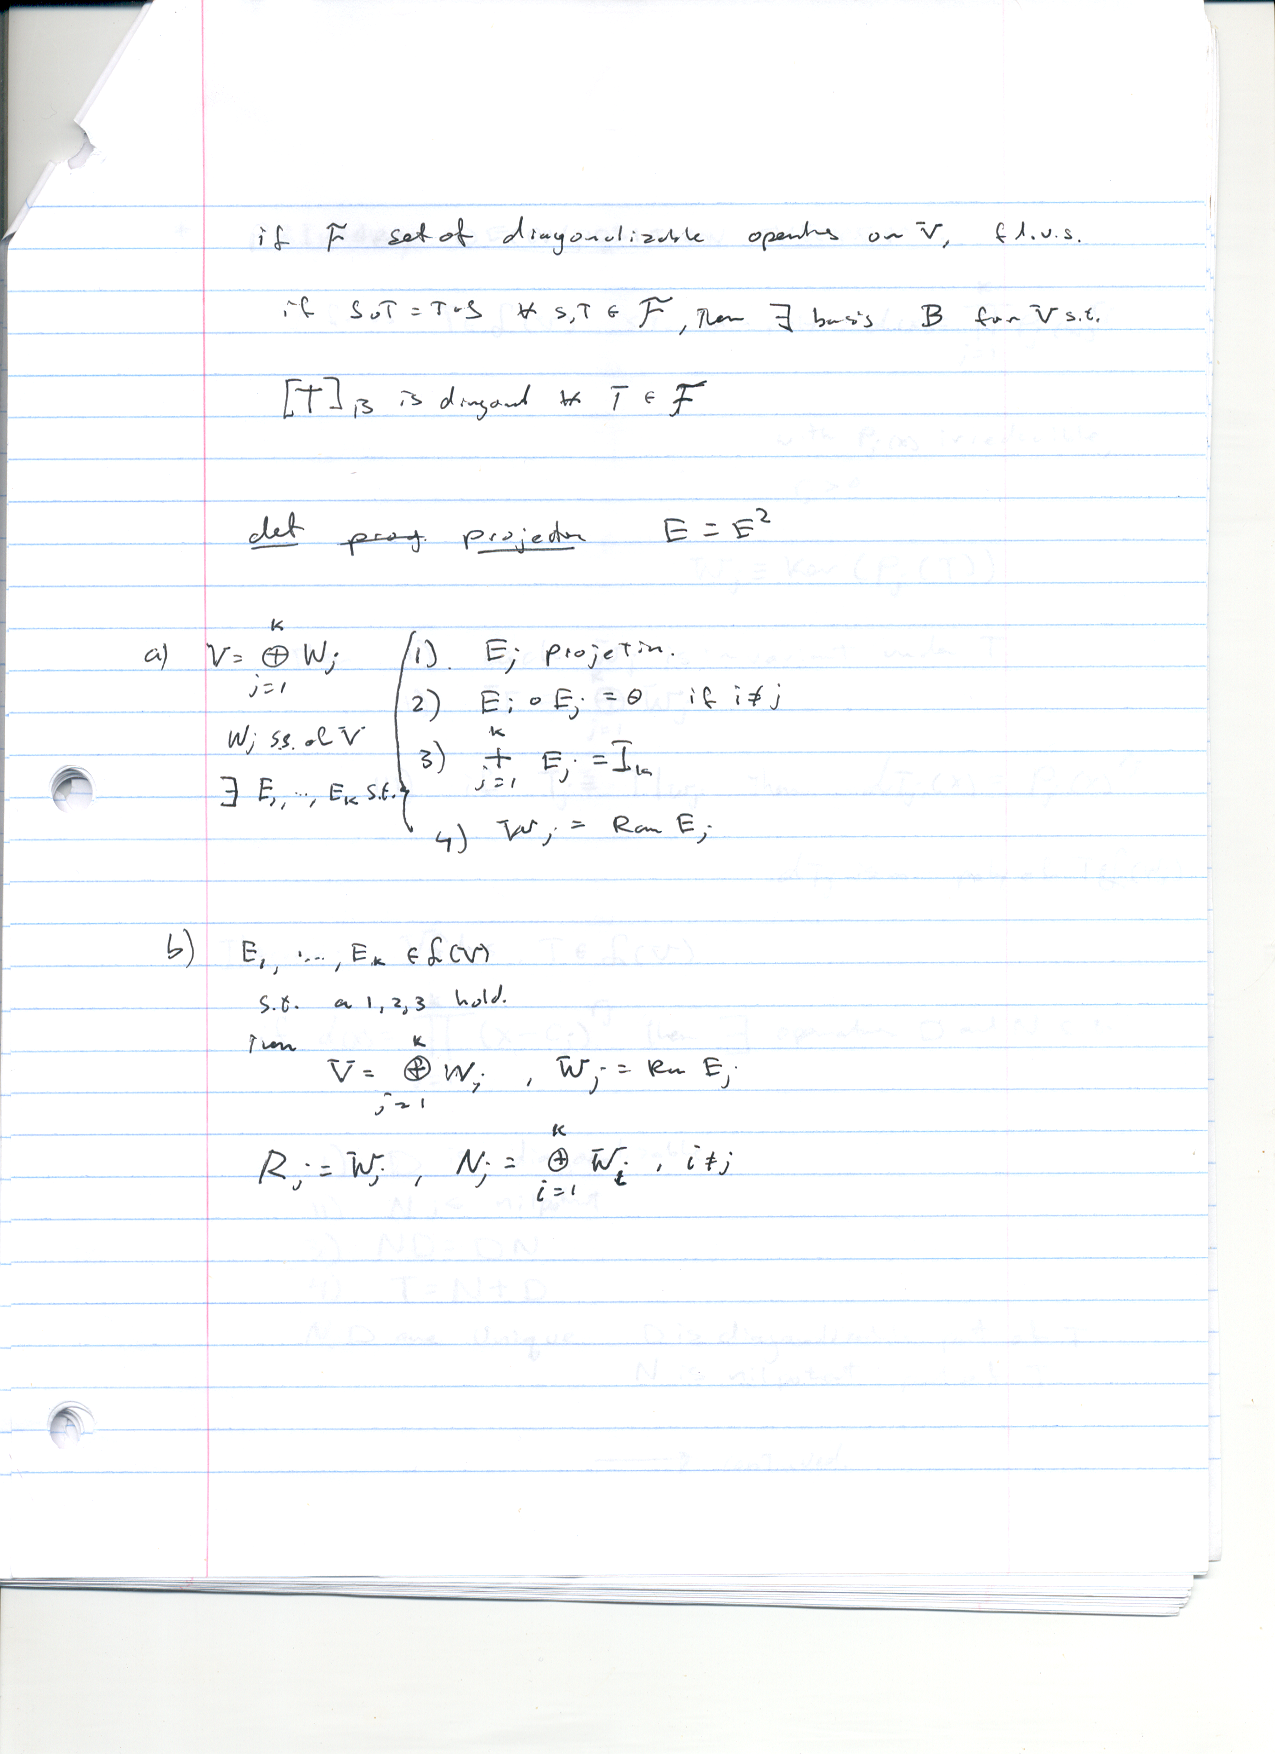 if F set of diagonalizable operators on V, f.d.v.s.
if S∘T = T∘S ∀ S,T ∈ F, then ∃ basis B for V s.t.
[T]_B is diagonal ∀ T ∈ F
def proj. projection E = E²
a) V = ⊕_{j=1}^{k} W_j
W_j s.s. of V
∃ E_1, ..., E_k s.t.
1). E_j projetin.
2) E_i ∘ E_j = θ if i≠j
3) +_{j=1}^{k} E_j = I
4) W_j = Ran E_j
b) E_1, ..., E_k ∈ L(V)
s.t. a 1,2,3 hold.
Then
V = ⊕_{j=1}^{k} W_j , W_j = Ran E_j
R_j = W_j , N_j = ⊕_{i=1}^{k} W_i , i≠j